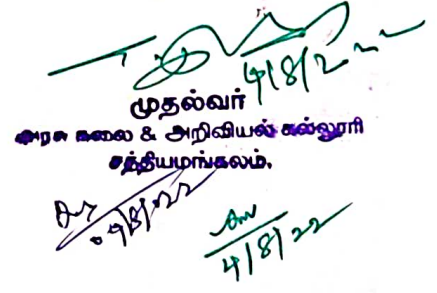 4/8/2022
முதல்வர்
அரசு கலை & அறிவியல் கல்லூரி
சத்தியமங்கலம்.
4/8/22